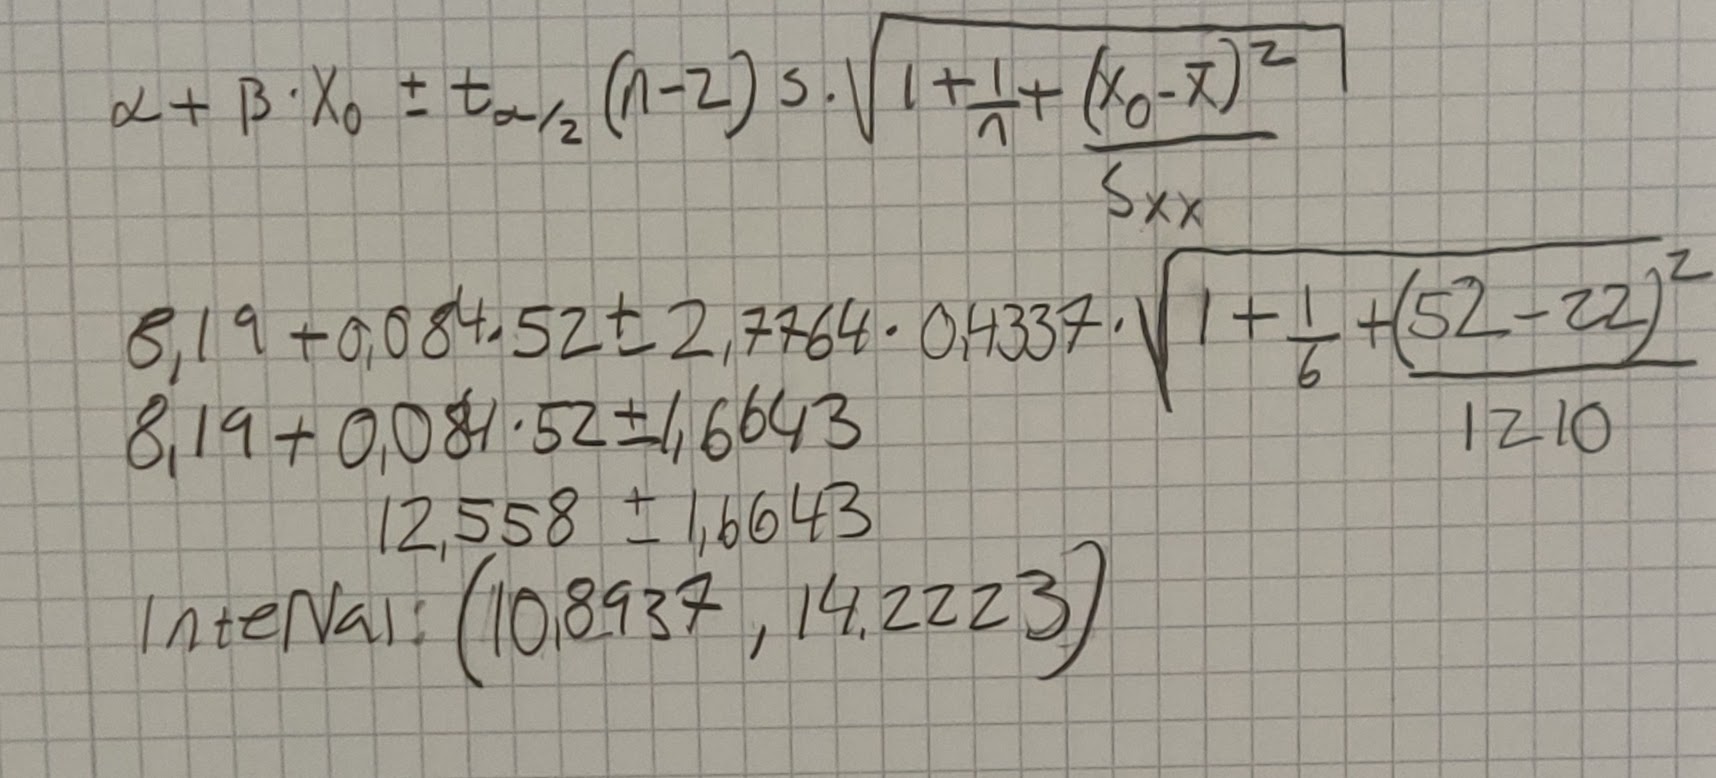 α + β · X₀ ± t_α/2 (n-2) s · √(1 + 1/n + (x₀ - x̄)²/Sxx)
8,19 + 0,084 · 52 ± 2,7764 · 0,4337 · √(1 + 1/6 + (52 - 22)²/1210)
8,19 + 0,084 · 52 ± 1,6643
12,558 ± 1,6643
Interval: (10,8937, 14,2223)